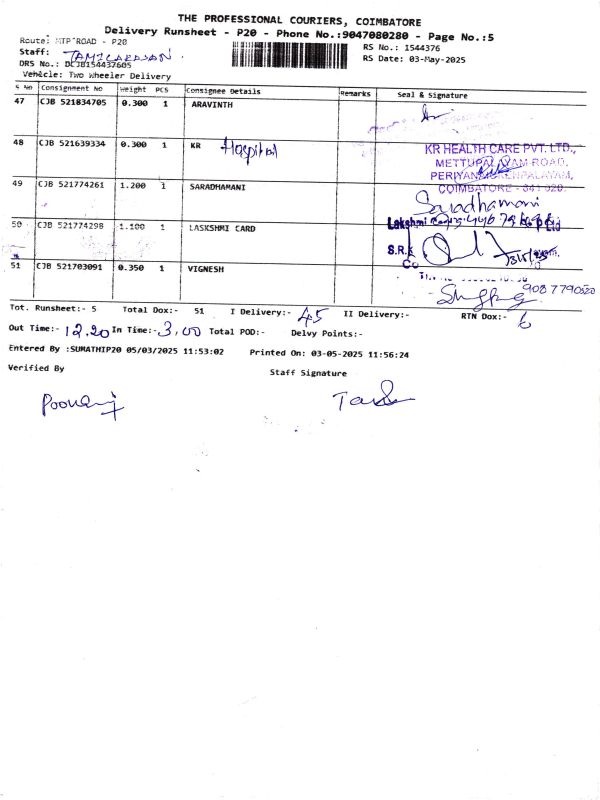 THE PROFESSIONAL COURIERS, COIMBATORE
Delivery Runsheet - P20 - Phone No.:9047080280 - Page No.:5
Route: MTP ROAD - P20
RS No.: 1544376
Staff: TAMILARASAN
RS Date: 03-May-2025
DRS No.: DCJB154437605
Vehicle: Two Wheeler Delivery
S No Consignment No Weight PCS Consignee Details Remarks Seal & Signature
47 CJB 521834705 0.300 1 ARAVINTH
48 CJB 521639334 0.300 1 KR Hospital
KR HEALTH CARE PVT. LTD.,
METTUPALAYAM ROAD,
PERIYANAICKENPALAYAM,
COIMBATORE - 641 020.
49 CJB 521774261 1.200 1 SARADHAMANI
Saradhamani
50 CJB 521774298 1.100 1 LASKSHMI CARD
Lakshmi Card
S.R.K
Co
51 CJB 521703091 0.350 1 VIGNESH
9087790520
Tot. Runsheet:- 5 Total Dox:- 51 I Delivery:- 45 II Delivery:- RTN Dox:- 6
Out Time:- 12.20 In Time:- 3.00 Total POD:- Delvy Points:-
Entered By :SUMATHIP20 05/03/2025 11:53:02 Printed On: 03-05-2025 11:56:24
Verified By
Staff Signature